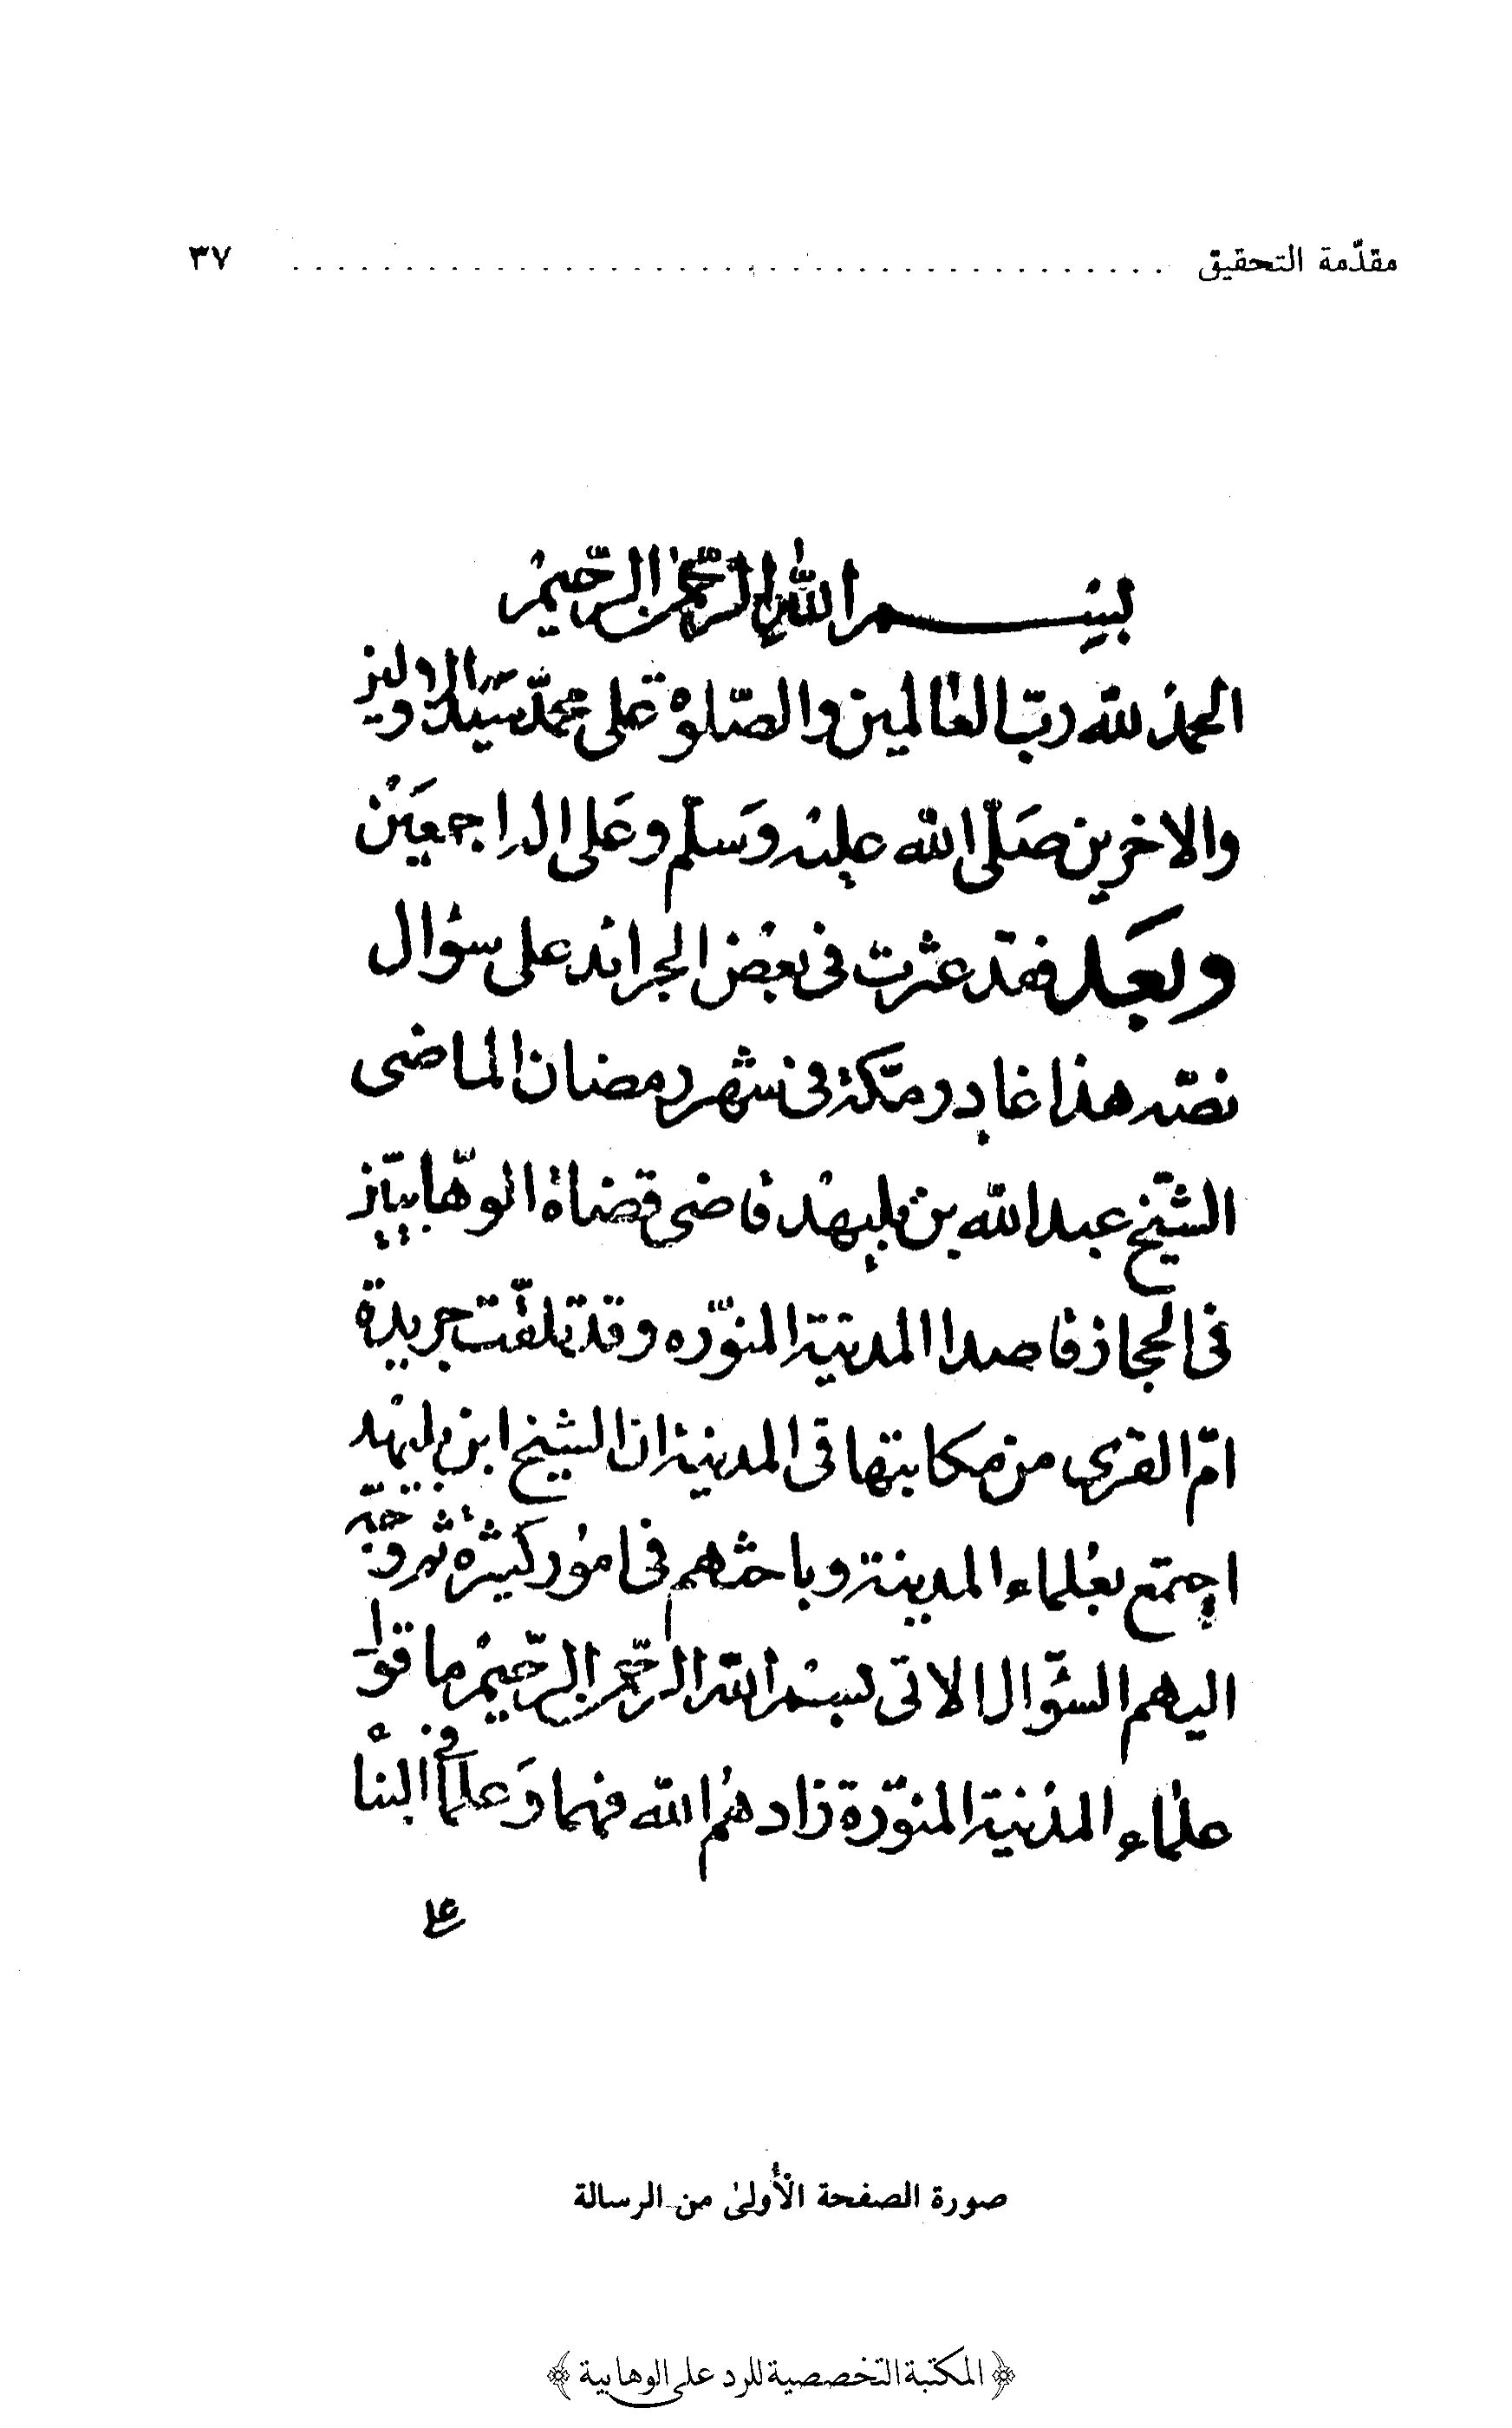 مقدّمة التحقيق ........................................ ٣٧
بسم الله الرحمن الرحيم
الحمد لله رب العالمين والصّلوة على محمّد سيد الاولين
والاخرين صَلّى الله عليه وَسلّم وعَلى اله اجمعَين
وبعَد فقد عثرت فى بعض الجرائد على سؤال
نصّه هذا غادر مكّة فى شهر رمضان الماضى
الشيخ عبدالله بن بليهد قاضى قضاة الوهّابيّين
فى الحجاز قاصدا المدينة المنوّره وقد تلقّت جريدة
امّ القرى من مكاتبتها فى المدينة ان الشيخ ابن بليهد
اجتمع بعلماء المدينة وباحثهم فى امور كثيرة ثم وجّه
اليهم السّؤال الاتى بسم الله الرّحمن الرّحيم ما قول
علماء المدينة المنوّرة زادهم الله فهما وَعلما فى البناء
على
صورة الصفحة الأولىٰ من الرسالة
﴿المكتبة التخصصية للرد على الوهابية﴾